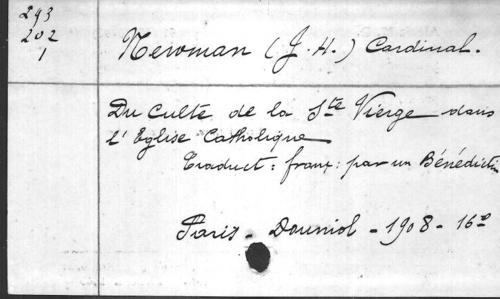 293
202
1
Newman (J. H.) Cardinal.
Du Culte de la Ste Vierge dans
l'Eglise Catholique
Traduct: franç: par un Bénédictin
Paris - Douniol - 1908 - 16º